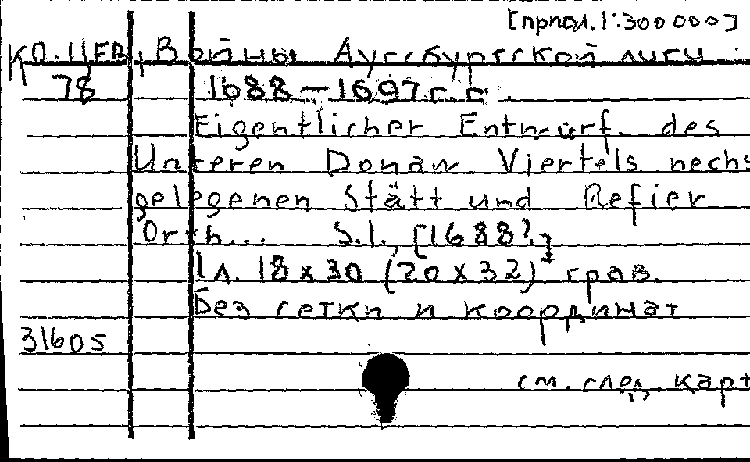 [прибл. 1:300 000]
КО. ЦЕВ, Войны Аугсбургской лиги
78 1688—1697 г.г.
Eigentlicher Entwurf des
Unteren Donau Viertels nechs
gelegenen Stätt und Refier
Orth... S.l., [1688?]
1 л. 18 x 30 (20 x 32) грав.
Без сетки и координат
31605
см. след. карт